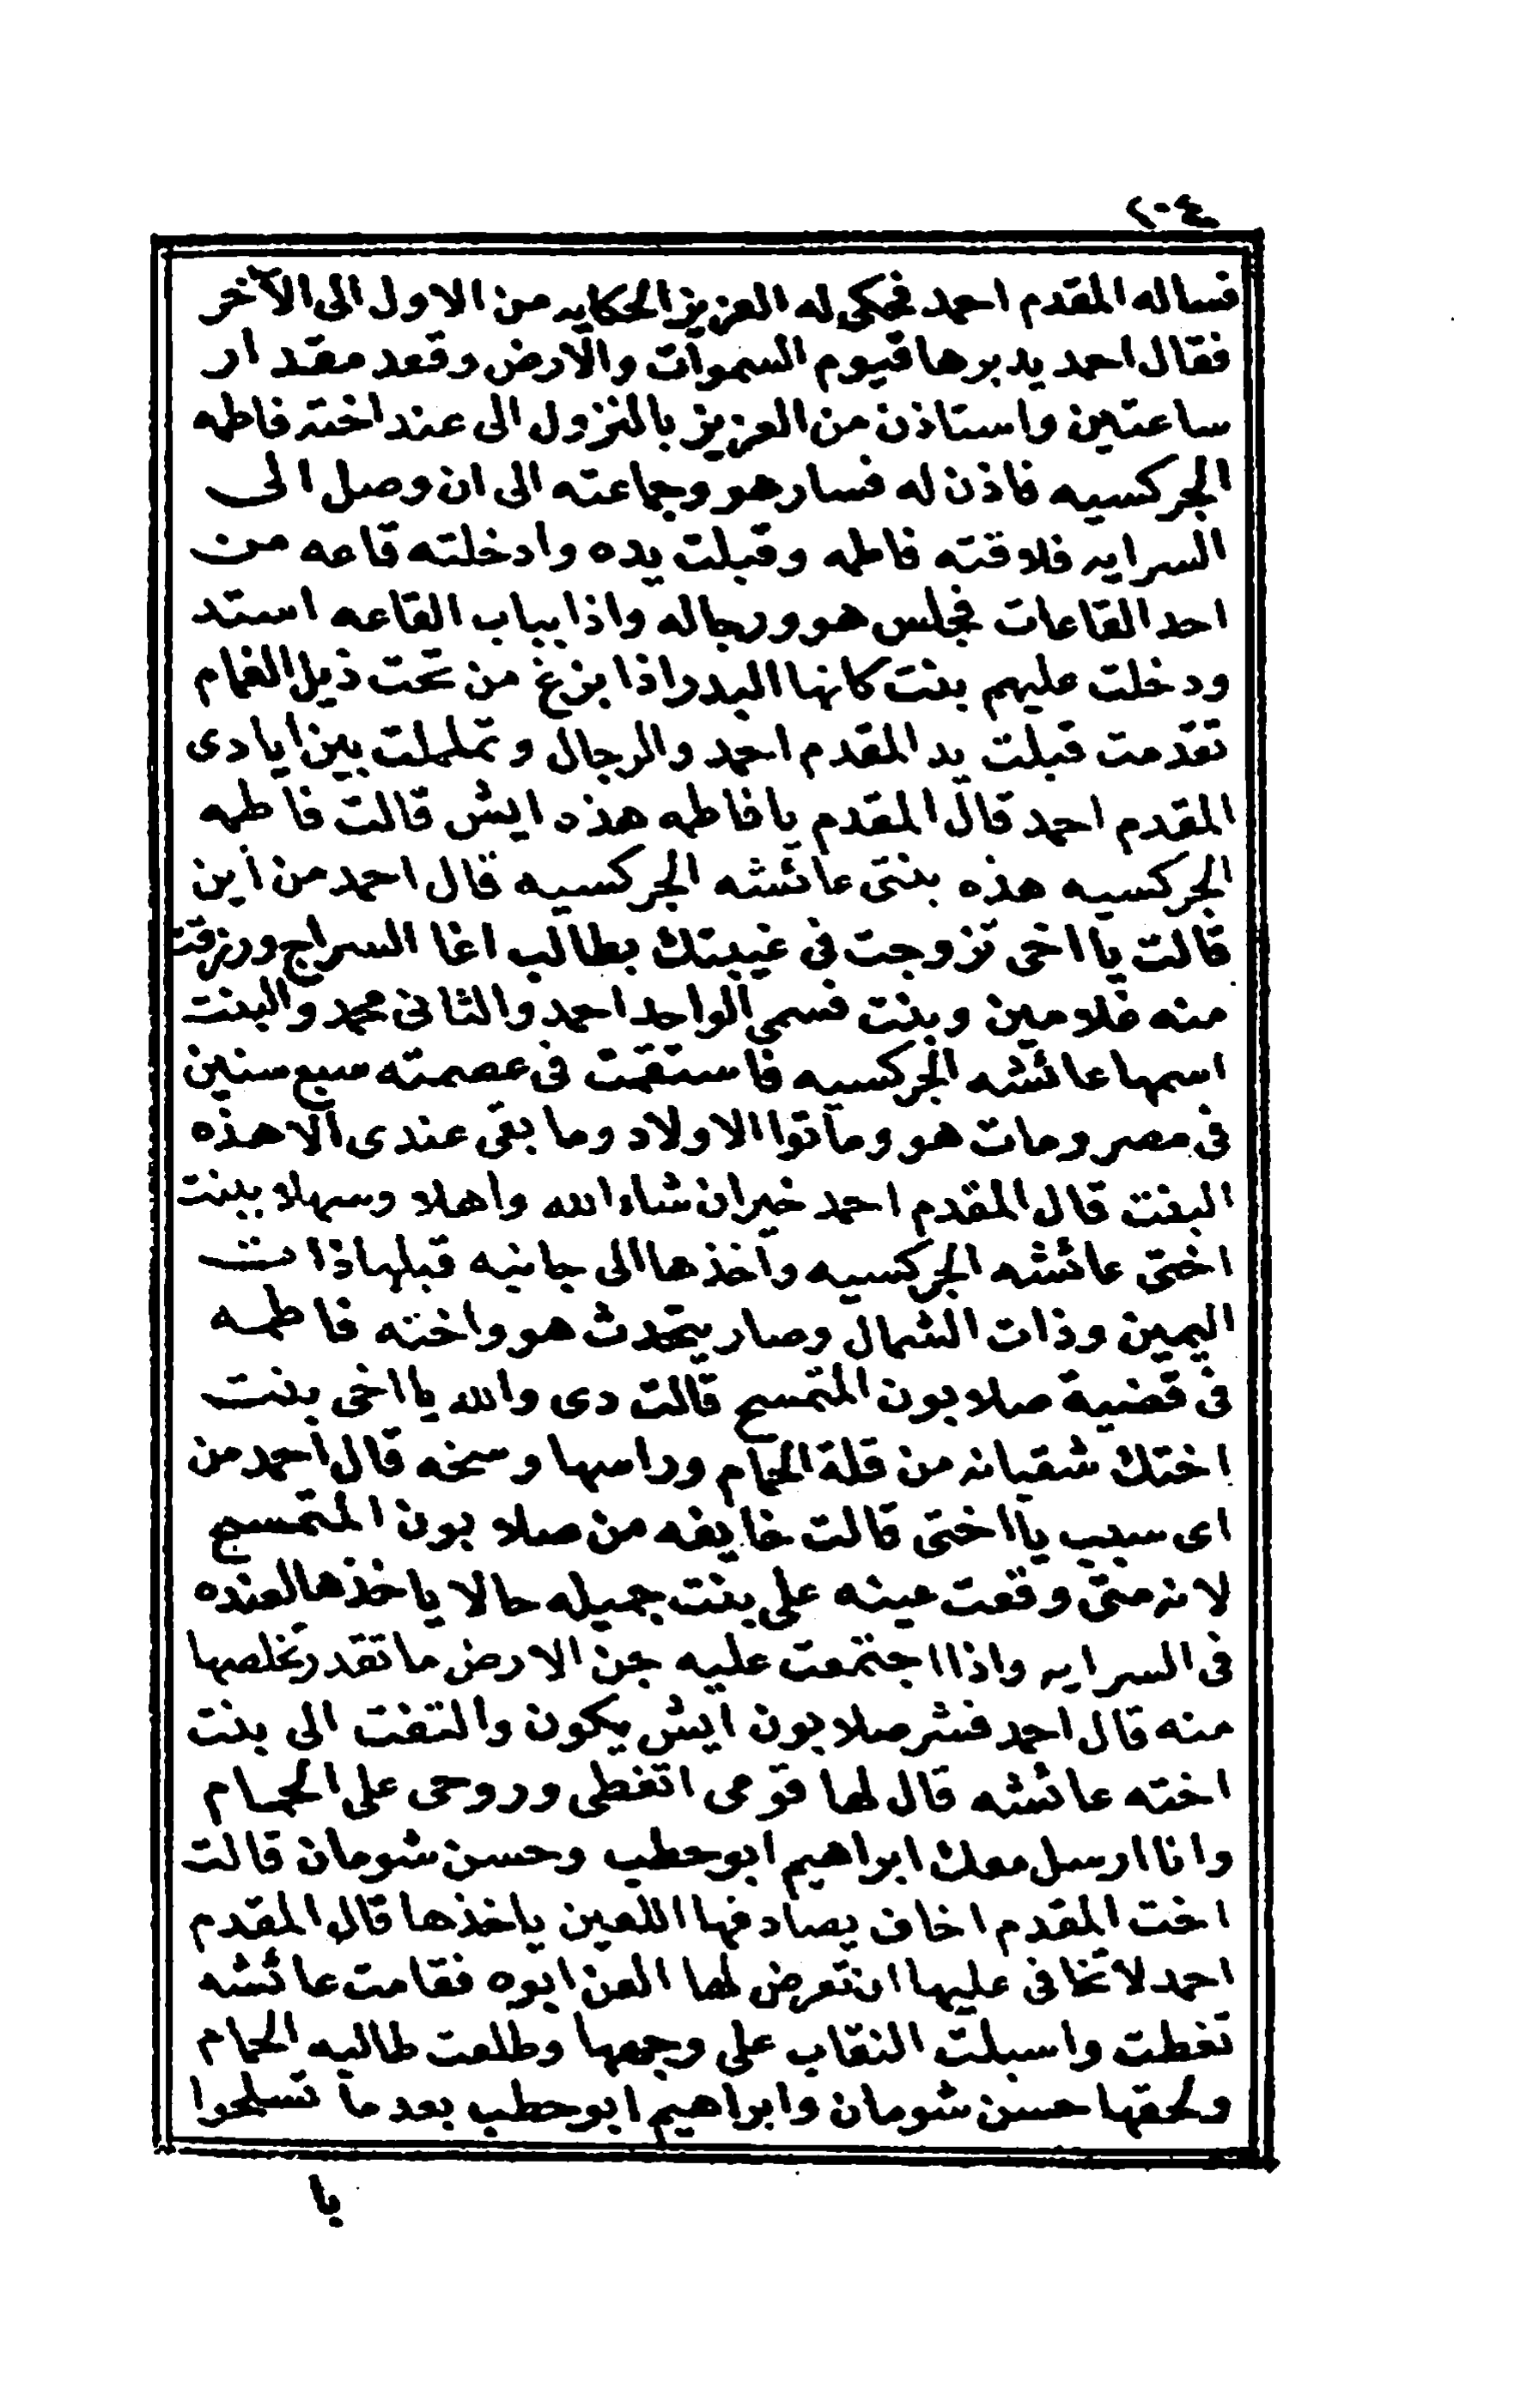 ٢٠٤
فساله المقدم احمد فحكى له العزيز الحكايه من الاول الى الآخر
فقال احمد يدبرها قيوم السموات والارض وقعد مقدار
ساعتين واستاذن من العزيز بالنزول الى عند اخته فاطمه
الجركسيه فاذن له فسار هو وجماعته الى ان وصل الى
السرايه فلاقته فاطمه وقبلت يده وادخلته قاعه من
احد القاعات فجلس هو ورجاله واذا بباب القاعه استد
ودخلت عليهم بنت كانها البدر اذا بزغ من تحت ذيل الغمام
تقدمت قبلت يد المقدم احمد والرجال وتململت بين ايادى
المقدم احمد قال المقدم يا فاطمه هذه ايش قالت فاطمه
الجركسيه هذه بنتى عائشه الجركسيه قال احمد من اين
قالت يا اخى تزوجت فى غيبتك بطالب اغا السراج ورزقت
منه غلامين وبنت فسمى الواحد احمد والثانى محمد والبنت
اسمها عائشه الجركسيه فاستقمت فى عصمته سبع سنين
فى مصر ومات هو وماتوا الاولاد وما بقى عندى الا هذه
البنت قال المقدم احمد خير ان شاء الله واهلا وسهلا ببنت
اختى عائشه الجركسيه واخذها الى جانبه قبلها ذات
اليمين وذات الشمال وصار يتحدث هو واخته فاطمه
فى قضية صلابون المتمسح قالت دى والله يا اخى بنت
اختك شقبانه من قلة الحمام وراسها وسخه قال احمد من
اى سبب يا اختى قالت خايفه من صلابون المتمسح
لانه متى وقعت عينه على بنت جميله حالا ياخذها لعنده
فى السرايه واذا اجتمعت عليه جن الارض ما تقدر تخلصها
منه قال احمد فشر صلابون ايش يكون والتفت الى بنت
اخته عائشه قال لها قومى اتغطى وروحى على الحمام
وانا ارسل معك ابراهيم ابو حطب وحسن شومان قالت
اخت المقدم اخاف يصادفها اللعين ياخذها قال المقدم
احمد لا تخافى عليها ان تعرض لها العن ابوه فقامت عائشه
تغطت واسبلت النقاب على وجهها وطلعت طالبه الحمام
ولحقها حسن شومان وابراهيم ابو حطب بعد ما تسلحوا
با